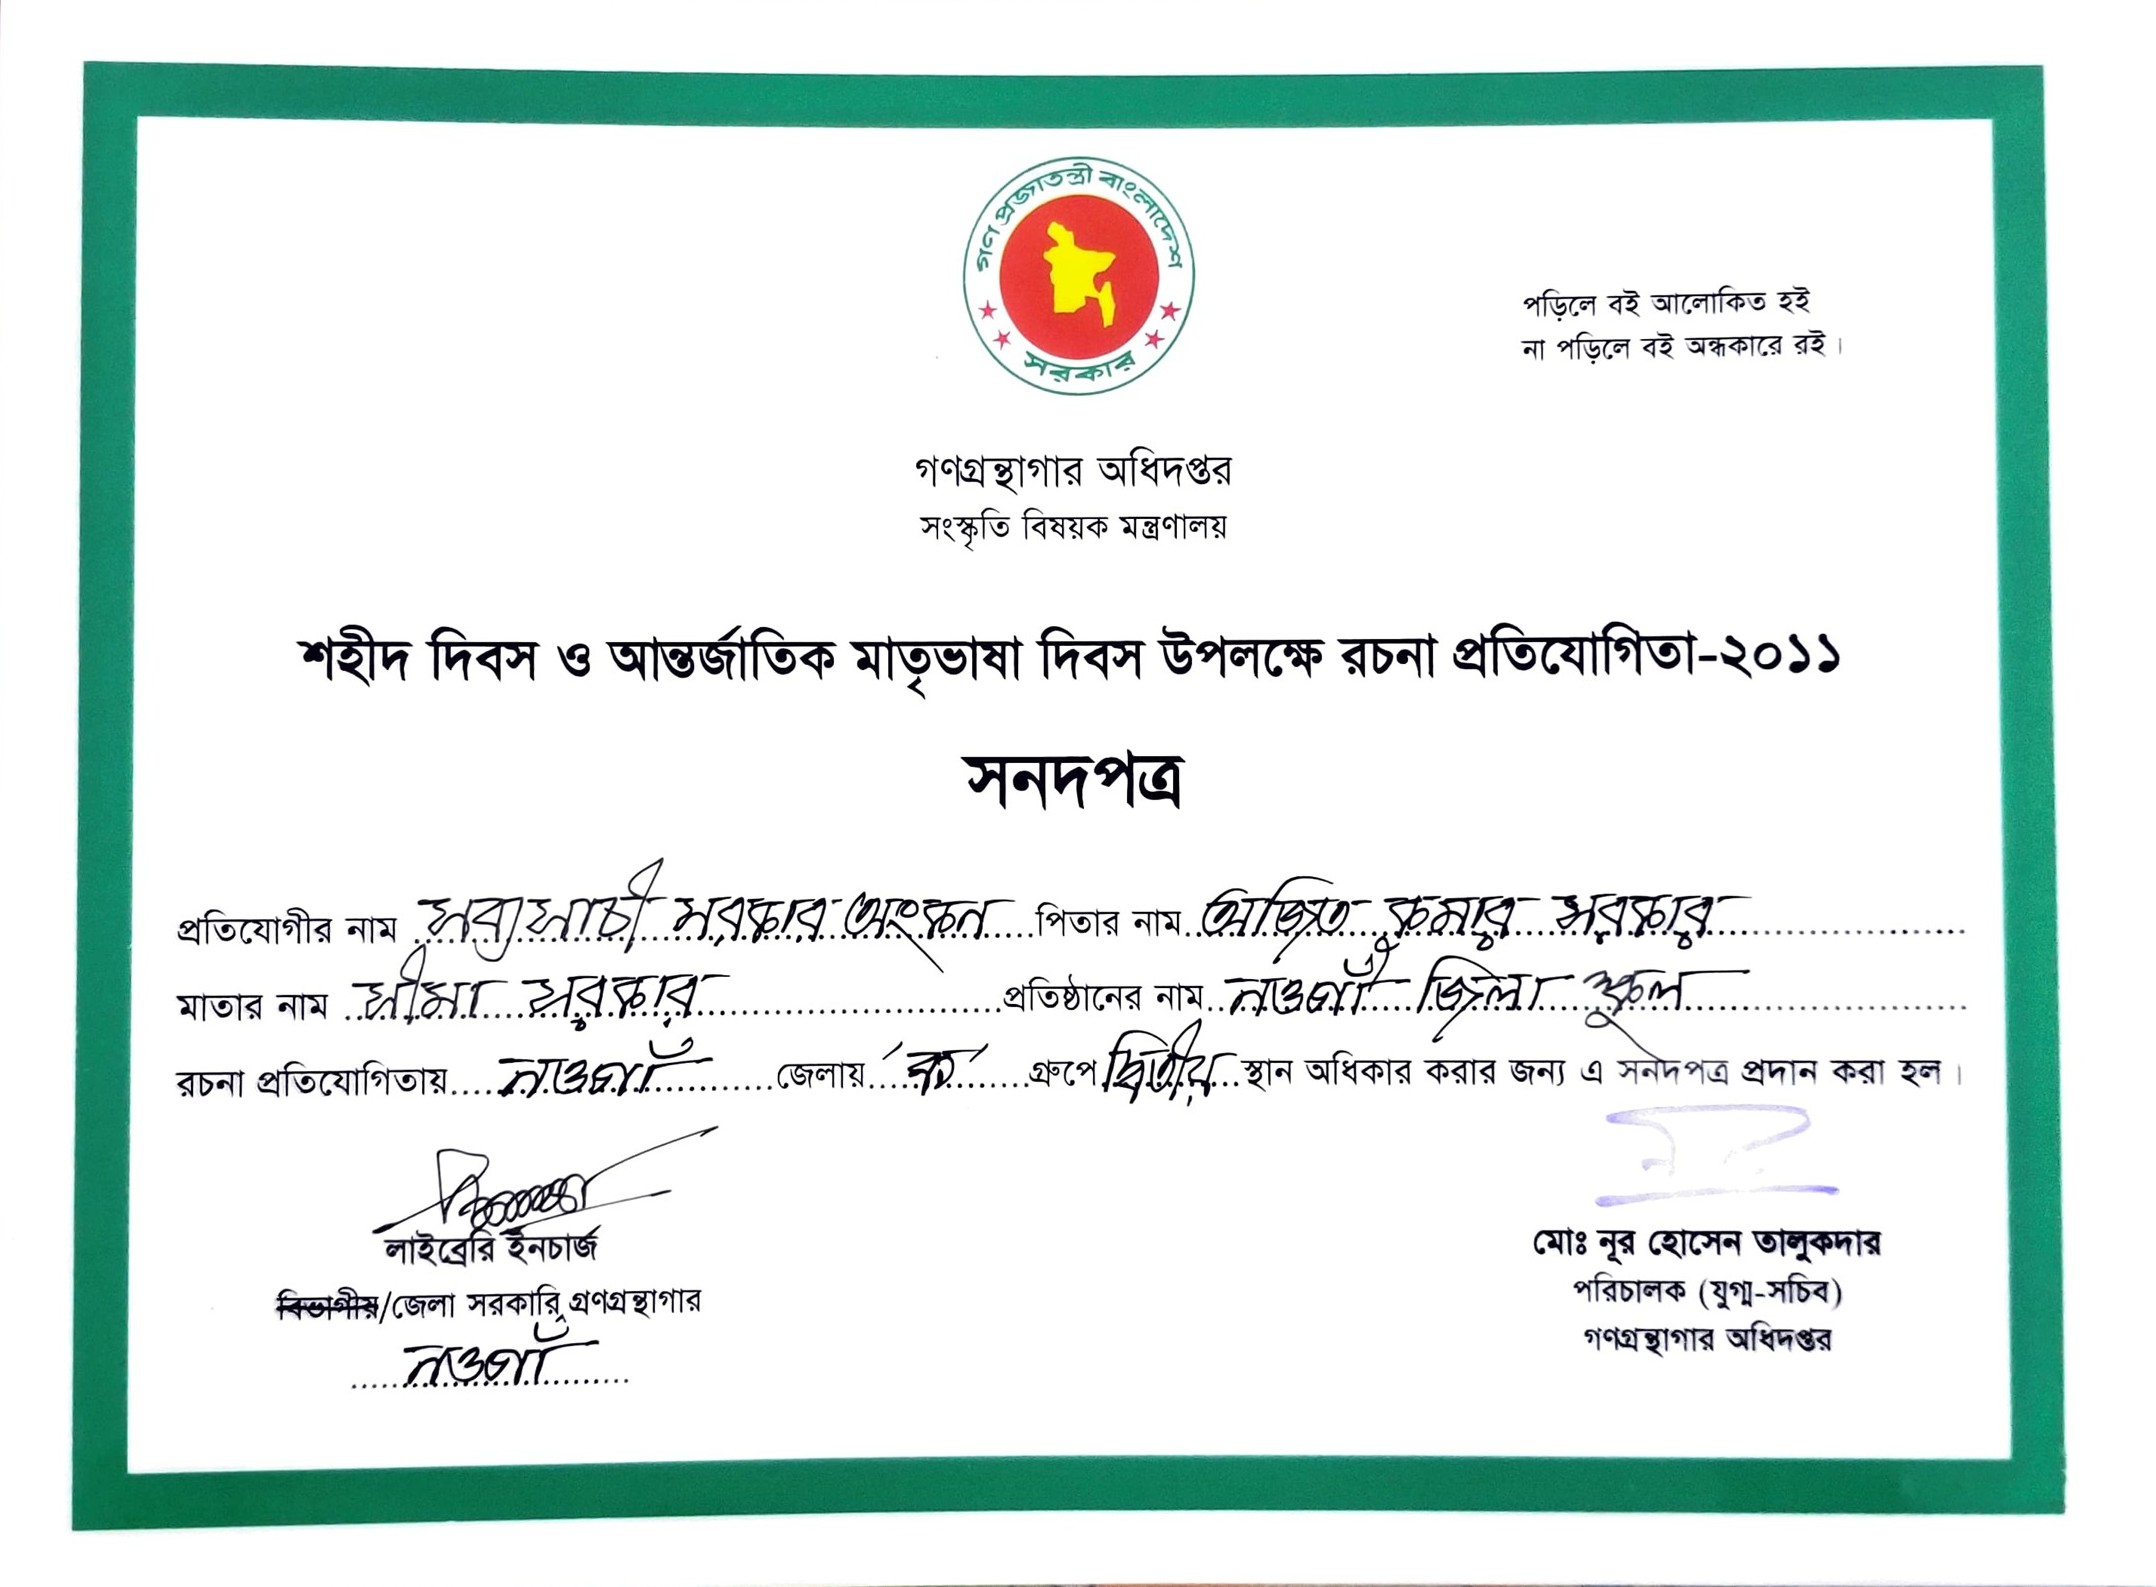 গণ প্রজাতন্ত্রী বাংলাদেশ
সরকার
পড়িলে বই আলোকিত হই
না পড়িলে বই অন্ধকারে রই।
গণগ্রন্থাগার অধিদপ্তর
সংস্কৃতি বিষয়ক মন্ত্রণালয়
শহীদ দিবস ও আন্তর্জাতিক মাতৃভাষা দিবস উপলক্ষে রচনা প্রতিযোগিতা-২০১১
সনদপত্র
প্রতিযোগীর নাম সব্যসাচী সরকার অংকন পিতার নাম অজিত কুমার সরকার
মাতার নাম সীমা সরকার প্রতিষ্ঠানের নাম নওগাঁ জিলা স্কুল
রচনা প্রতিযোগিতায় নওগাঁ জেলায় 'ক' গ্রুপে দ্বিতীয় স্থান অধিকার করার জন্য এ সনদপত্র প্রদান করা হল।
লাইব্রেরি ইনচার্জ
বিভাগীয়/জেলা সরকারি গ্রণগ্রন্থাগার
নওগাঁ
মোঃ নূর হোসেন তালুকদার
পরিচালক (যুগ্ম-সচিব)
গণগ্রন্থাগার অধিদপ্তর